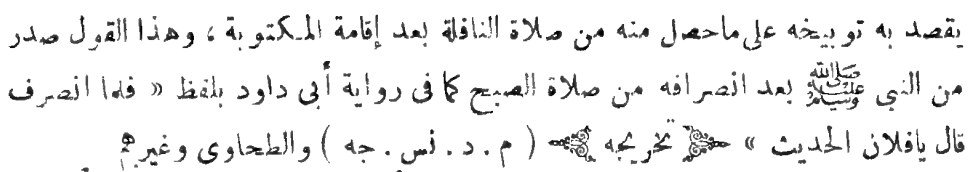 يقصد به توبيخه على ماحصل منه من صلاة النافلة بعد إقامة المكتوبة ، وهذا القول صدر
من النبى ﷺ بعد انصرافه من صلاة الصبح كما فى رواية أبى داود بلفظ « فلما انصرف
قال يافلان الحديث » تخريجه ( م . د . نس . جه ) والطحاوى وغيرهم